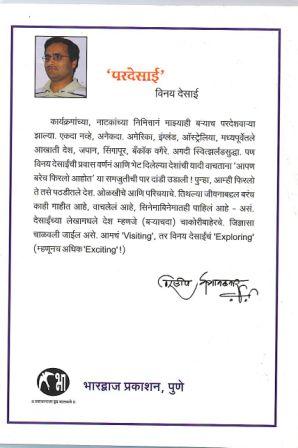 ‘परदेसाई’
विनय देसाई
कार्यक्रमांच्या, नाटकांच्या निमित्तानं माझ्याही बऱ्याच परदेशवाऱ्या
झाल्या. एकदा नव्हे, अनेकदा. अमेरिका, इंग्लंड, ऑस्ट्रेलिया, मध्यपूर्वेतले
आखाती देश, जपान, सिंगापूर, बँकॉक वगैरे. अगदी स्वित्झर्लंडसुद्धा. पण
विनय देसाईंची प्रवास वर्णनं आणि भेट दिलेल्या देशांची यादी वाचताना ‘आपण
बरेच फिरलो आहोत’ या समजुतीची पार दांडी उडाली ! पुन्हा, आम्ही फिरलो
ते तसे पठडीतले देश. ओळखीचे आणि परिचयाचे. तिथल्या जीवनाबद्दल बरंच
काही गाहीत आहे, वाचलेलं आहे, सिनेमाबिनेमातही पाहिलं आहे - असं.
देसाईंच्या लेखामधले देश म्हणजे (बऱ्याचदा) चाकोरीबाहेरचे, जिज्ञासा
चाळवली जाईल असे. आमचं ‘Visiting’, तर विनय देसाईंचं ‘Exploring’
(म्हणूनच अधिक ‘Exciting’ !)
भा
भारद्वाज प्रकाशन, पुणे